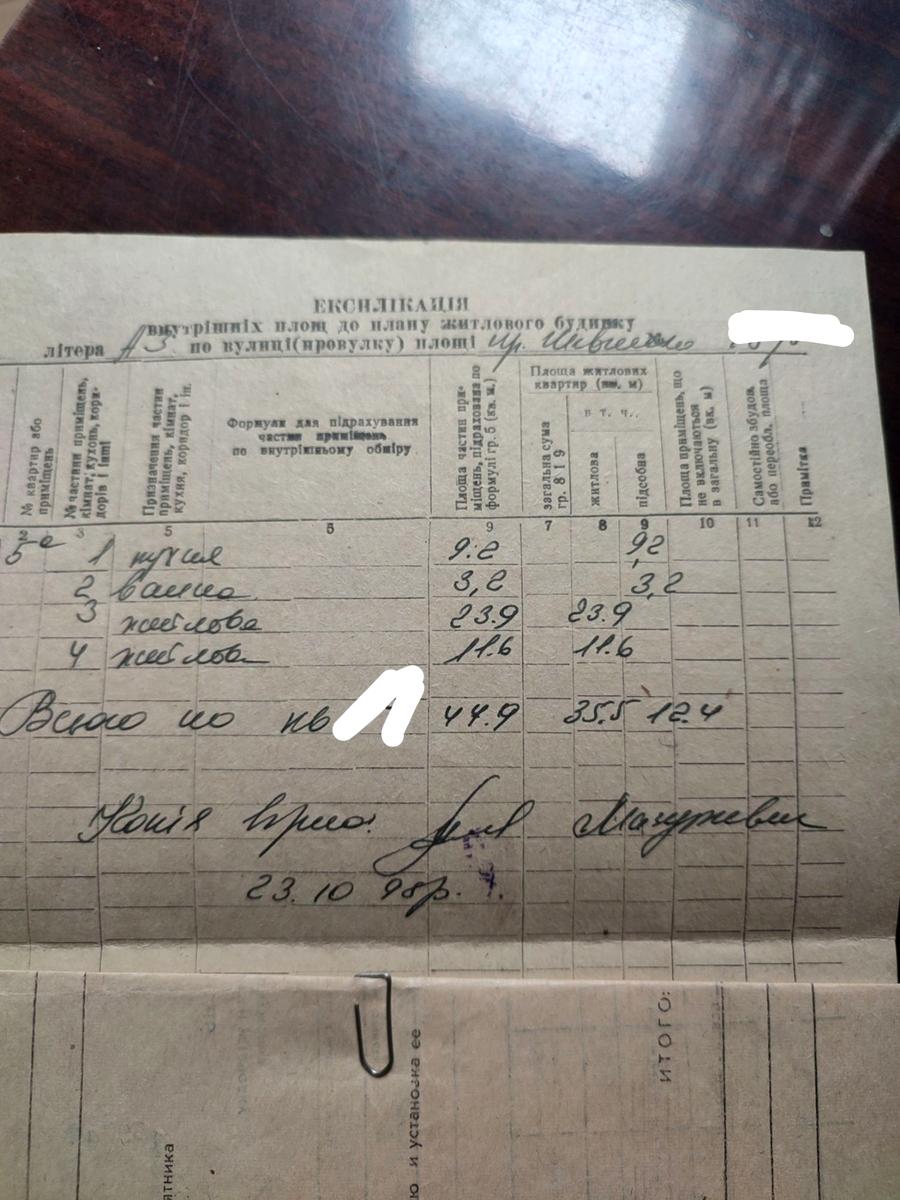 ЕКСПЛІКАЦІЯ
внутрішніх площ до плану житлового будинку
літера А3 по вулиці(провулку) площі пр.
№ квартир або приміщень
№ частини приміщень, кімнат, кухонь, коридорів і інші
Призначення частин приміщень, кімнат, кухня, коридор і ін.
Формули для підрахування частин приміщень по внутрішньому обміру
Площа частин приміщень, підрахована по формулі гр. 5 (кв. м.)
Площа житлових квартир (кв. м)
загальна сума гр. 8 і 9
в т. ч.,
житлова
підсобна
Площа приміщень, що не включаються в загальну (вк. м)
Самостійно збудов. або переобл. площа
Примітка
2 3 5 5 9 7 8 9 10 11 12
5а 1 кухня 9.2 9,2
2 ванна 3,2 3,2
3 житлова 23.9 23.9
4 житлова 11.6 11.6
Всього по кв 44.9 35.5 12.4
Копія вірна.
23.10 98р.
ИТОГО:
ю и установка ее
ятника